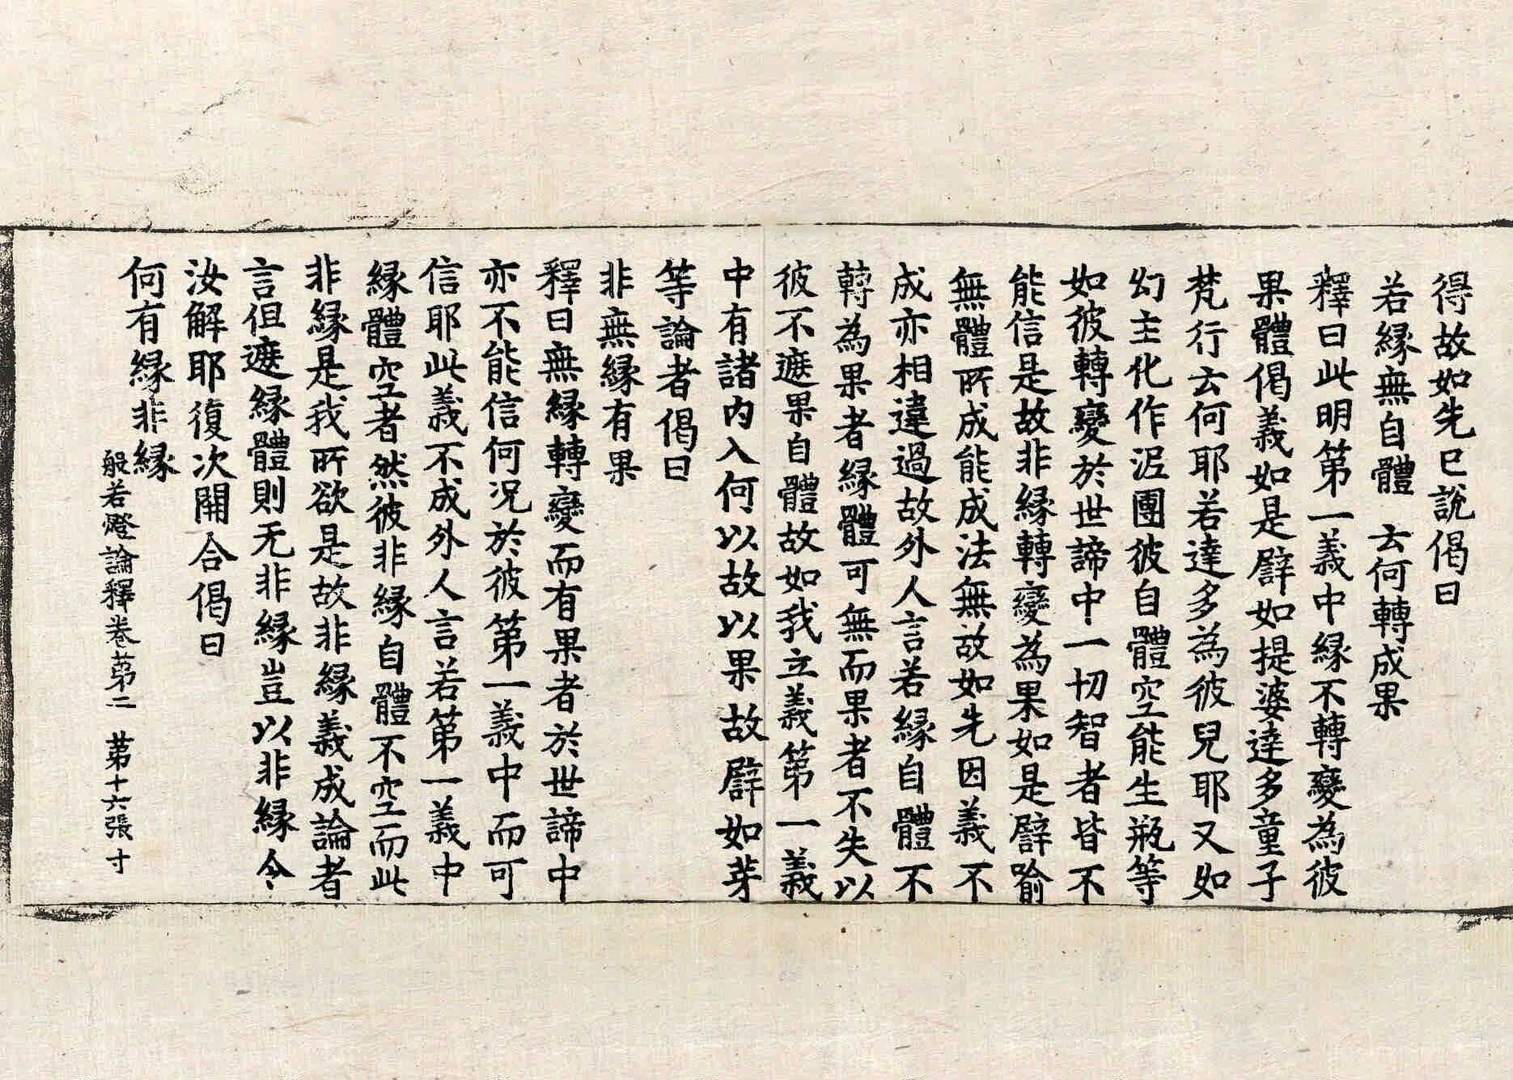 得故如先已說偈曰
若縁無自體 云何轉成果
釋曰此明第一義中縁不轉變為彼
果體偈義如是譬如提婆達多童子
梵行云何耶若達多為彼兒耶又如
幻主化作泥團彼自體空能生瓶等
如彼轉變於世諦中一切智者皆不
能信是故非縁轉變為果如是譬喻
無體所成能成法無故如先因義不
成亦相違過故外人言若縁自體不
轉為果者縁體可無而果者不失以
彼不遮果自體故如我立義第一義
中有諸内入何以故以果故譬如芽
等論者偈曰
非無縁有果
釋曰無縁轉變而有果者於世諦中
亦不能信何况於彼第一義中而可
信耶此義不成外人言若第一義中
縁體空者然彼非縁自體不空而此
非縁是我所欲是故非縁義成論者
言但遮縁體則无非縁豈以非縁令
汝解耶復次開合偈曰
何有縁非縁
般若燈論釋卷第二 第十六張 寸